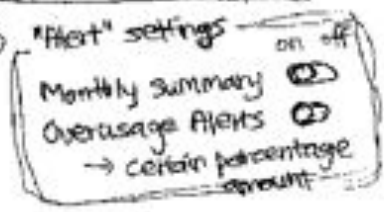 "Alert" settings
on off
Monthly Summary
Overusage Alerts
→ certain percentage
amount